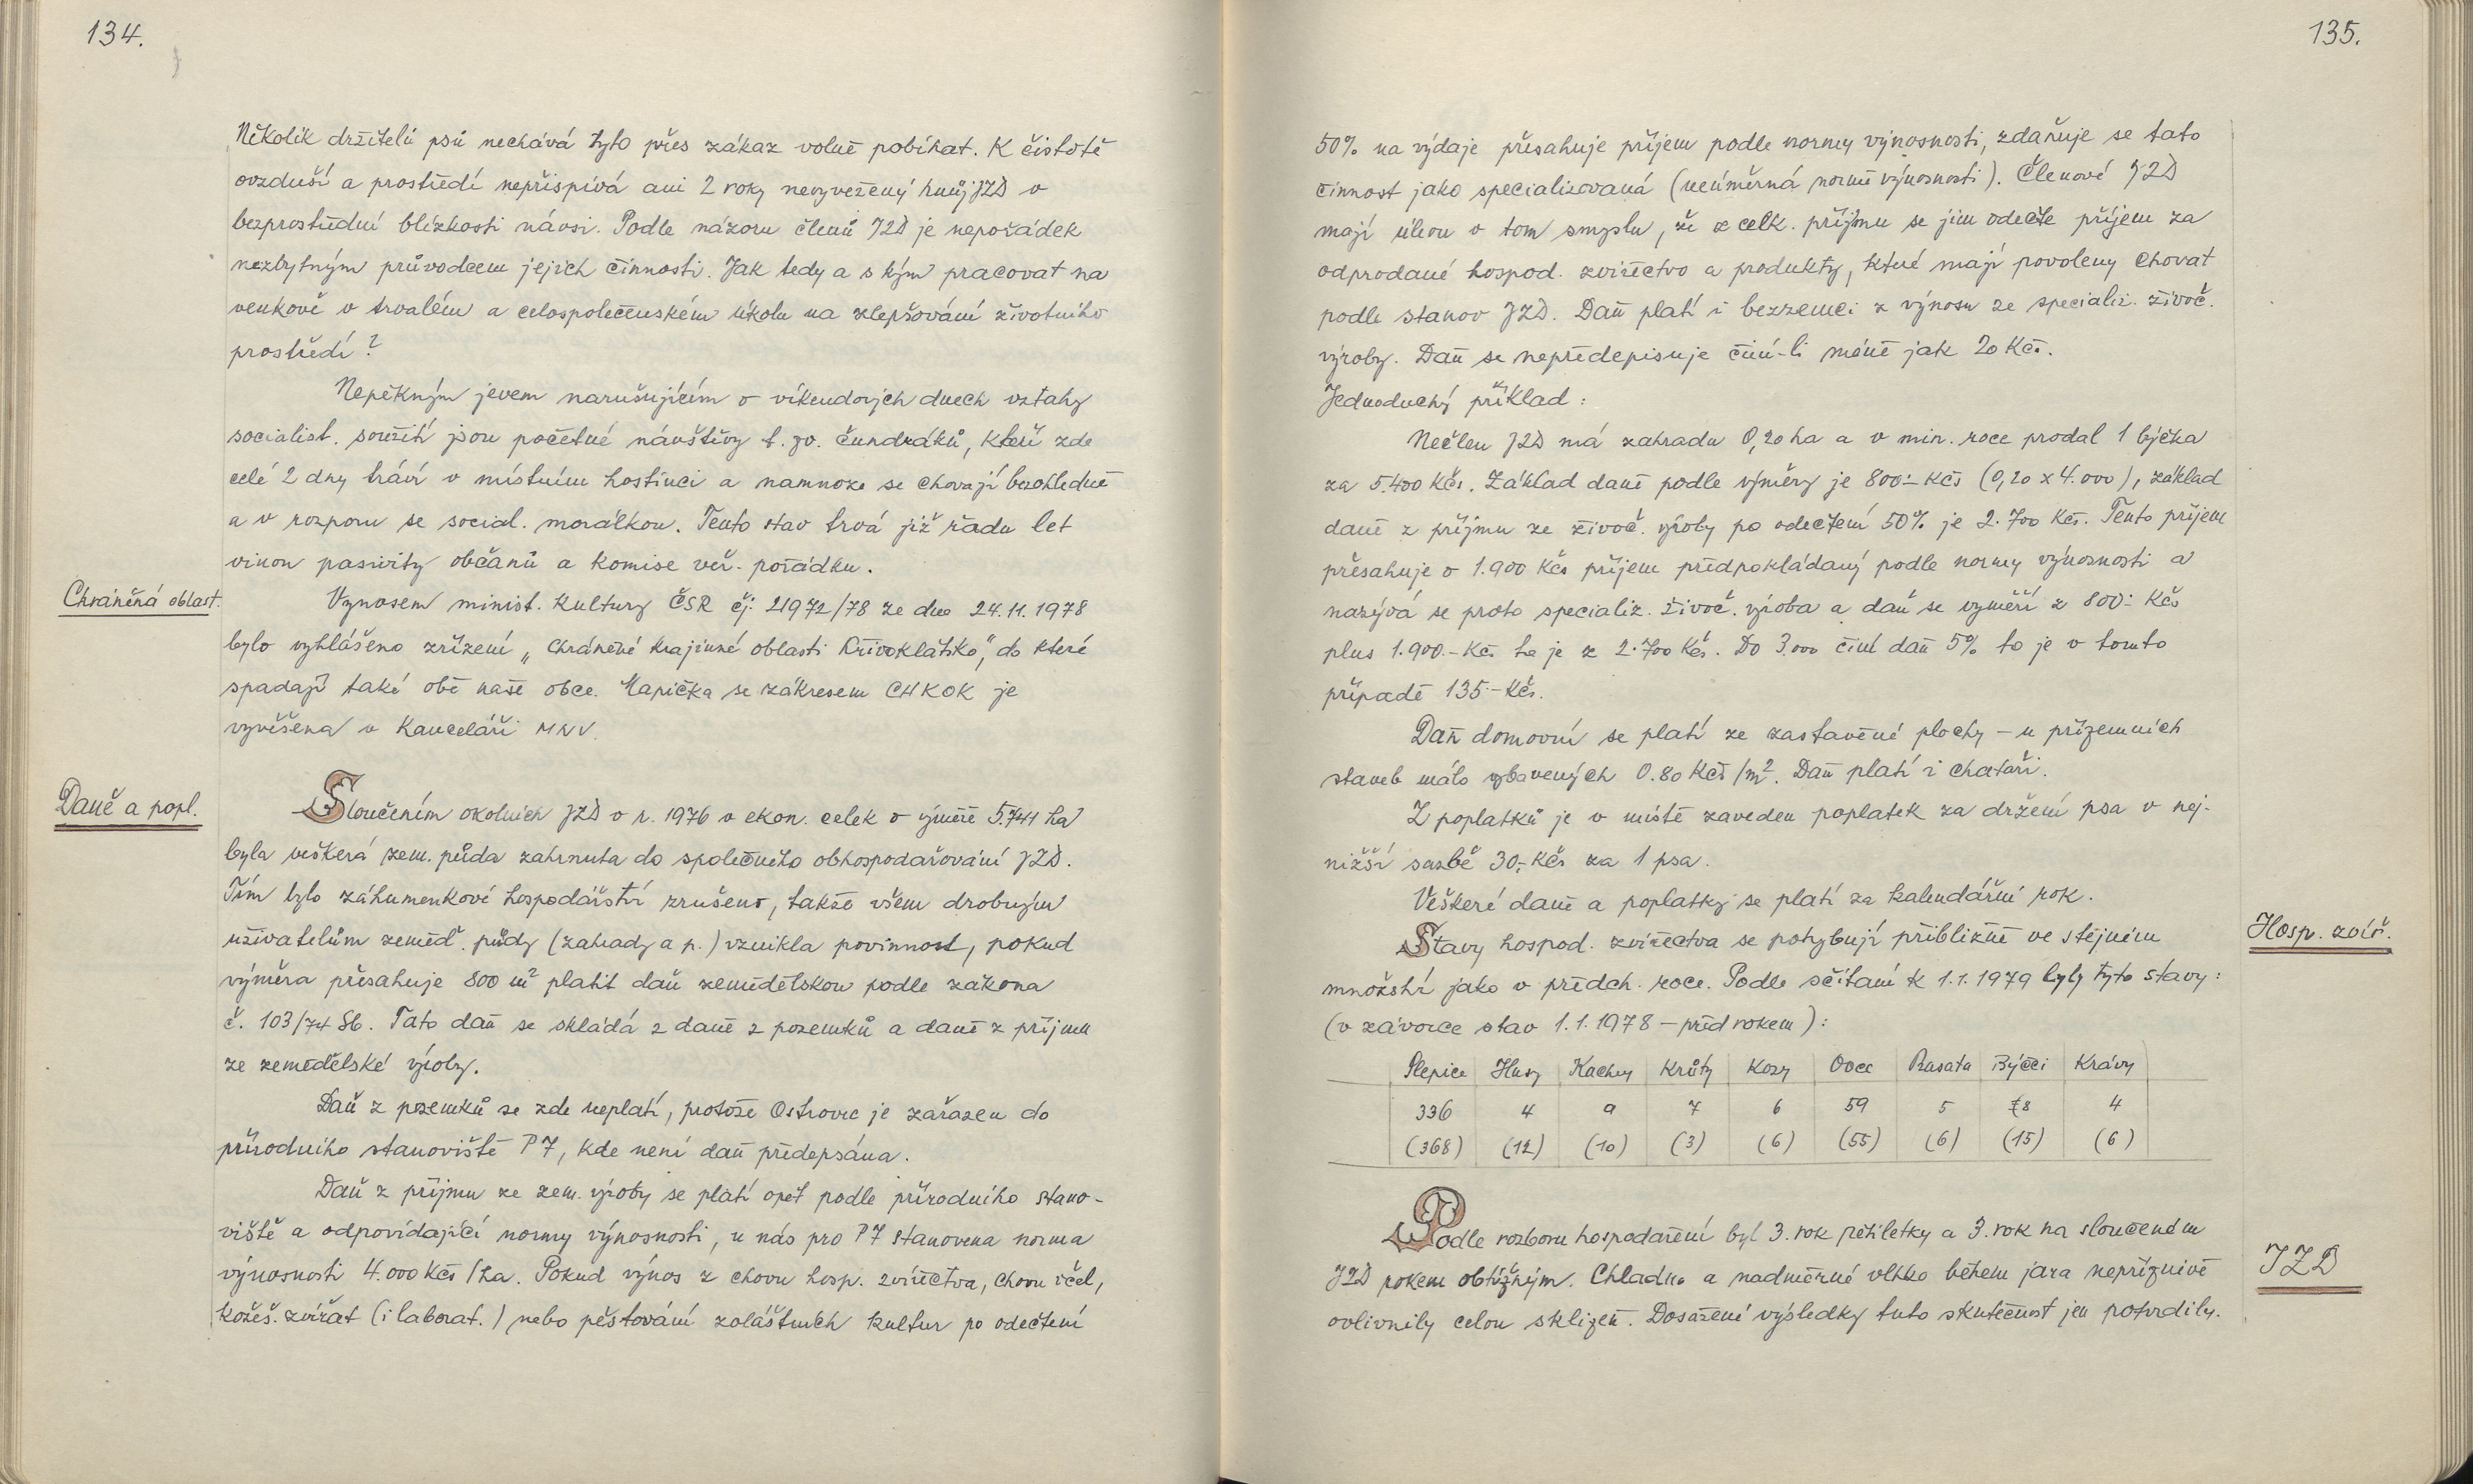 134.
Několik držitelů psů nechává tyto přes zákaz volně pobíhat. K čistotě
ovzduší a prostředí nepřispívá ani 2 roky nevyvežený hnůj JZD v
bezprostřední blízkosti návsi. Podle názoru členů JZD je nepořádek
nezbytným průvodcem jejich činnosti. Jak tedy a s kým pracovat na
venkově v trvalém a celospolečenském úkolu na zlepšování životního
prostředí?
Nepěkným jevem narušujícím o víkendových dnech vztahy
socialist. soužití jsou početné návštěvy t. zv. čundráků, kteří zde
celé 2 dny tráví v místním hostinci a namnoze se chovají bezohledně
a v rozporu se social. morálkou. Tento stav trvá již řadu let
vinou pasivity občanů a komise veř. pořádku.
Chráněná oblast.
Výnosem minist. kultury ČSR čj: 21972/78 ze dne 24.11.1978
bylo vyhlášeno zřízení „Chráněné krajinné oblasti Křivoklátsko", do které
spadají také obě naše obce. Mapička se zákresem CHKOK je
vyvěšena v kanceláři MNV.
Daně a popl.
Sloučením okolních JZD v r. 1976 v ekon. celek o výměře 5.744 ha
byla veškerá zem. půda zahrnuta do společného obhospodařování JZD.
Tím bylo záhumenkové hospodářství zrušeno, takže všem drobným
uživatelům zeměď. půdy (zahrady a p.) vznikla povinnost, pokud
výměra přesahuje 800 m² platit daň zemědělskou podle zákona
č. 103/74 Sb. Tato daň se skládá z daně z pozemků a daně z příjmu
ze zemědělské výroby.
Daň z pozemků se zde neplatí, protože Ostrovec je zařazen do
přírodního stanoviště P7, kde není daň předepsána.
Daň z příjmu ze zem. výroby se platí opět podle přírodního stano-
viště a odpovídající normy výnosnosti, u nás pro P7 stanovena norma
výnosnosti 4.000 Kčs/ha. Pokud výnos z chovu hosp. zvířectva, chovu včel,
kožeš. zvířat (i laborat.) nebo pěstování zvláštních kultur po odečtení
135.
50% na výdaje přesahuje příjem podle normy výnosnosti, zdaňuje se tato
činnost jako specializovaná (neúměrná normě výnosnosti). Členové JZD
mají úlevu v tom smyslu, že z celk. příjmu se jim odečte příjem za
odprodané hospod. zvířectvo a produkty, které mají povoleny chovat
podle stanov JZD. Daň platí i bezzemci z výnosu ze specializ. živoč.
výroby. Daň se nepředepisuje činí-li méně jak 20 Kčs.
Jednoduchý příklad:
Nečlen JZD má zahradu 0,20 ha a v min. roce prodal 1 býčka
za 5.400 Kčs. Základ daně podle výměry je 800.- Kčs (0,20 x 4.000), základ
daně z příjmu ze živoč. výroby po odečtení 50% je 2.700 Kčs. Tento příjem
přesahuje o 1.900 Kčs příjem předpokládaný podle normy výnosnosti a
nazývá se proto specializ. živoč. výroba a daň se vyměří z 800.- Kčs
plus 1.900.- Kčs to je z 2.700 Kčs. Do 3.000 činí daň 5% to je v tomto
případě 135.- Kčs.
Daň domovní se platí ze zastavěné plochy - u přízemních
staveb málo vybavených 0.80 Kčs/m². Daň platí i chataři.
Z poplatků je v místě zaveden poplatek za držení psa v nej-
nižší sazbě 30,- Kčs za 1 psa.
Veškeré daně a poplatky se platí za kalendářní rok.
Hosp. zvíř.
Stavy hospod. zvířectva se pohybují přibližně ve stejném
množství jako v předch. roce. Podle sčítání k 1.1.1979 byly tyto stavy:
(v závorce stav 1.1.1978 - před rokem):
Slepice Husy Kachny Krůty Kozy Ovce Prasata Býčci Krávy
336 4 9 7 6 59 5 8 4
(368) (12) (10) (3) (6) (55) (6) (15) (6)
JZD
Podle rozboru hospodaření byl 3. rok pětiletky a 3. rok na sloučeném
JZD rokem obtížným. Chladno a nadměrné vlhko během jara nepříznivě
ovlivnily celou sklizeň. Dosažené výsledky tuto skutečnost jen potvrdily.